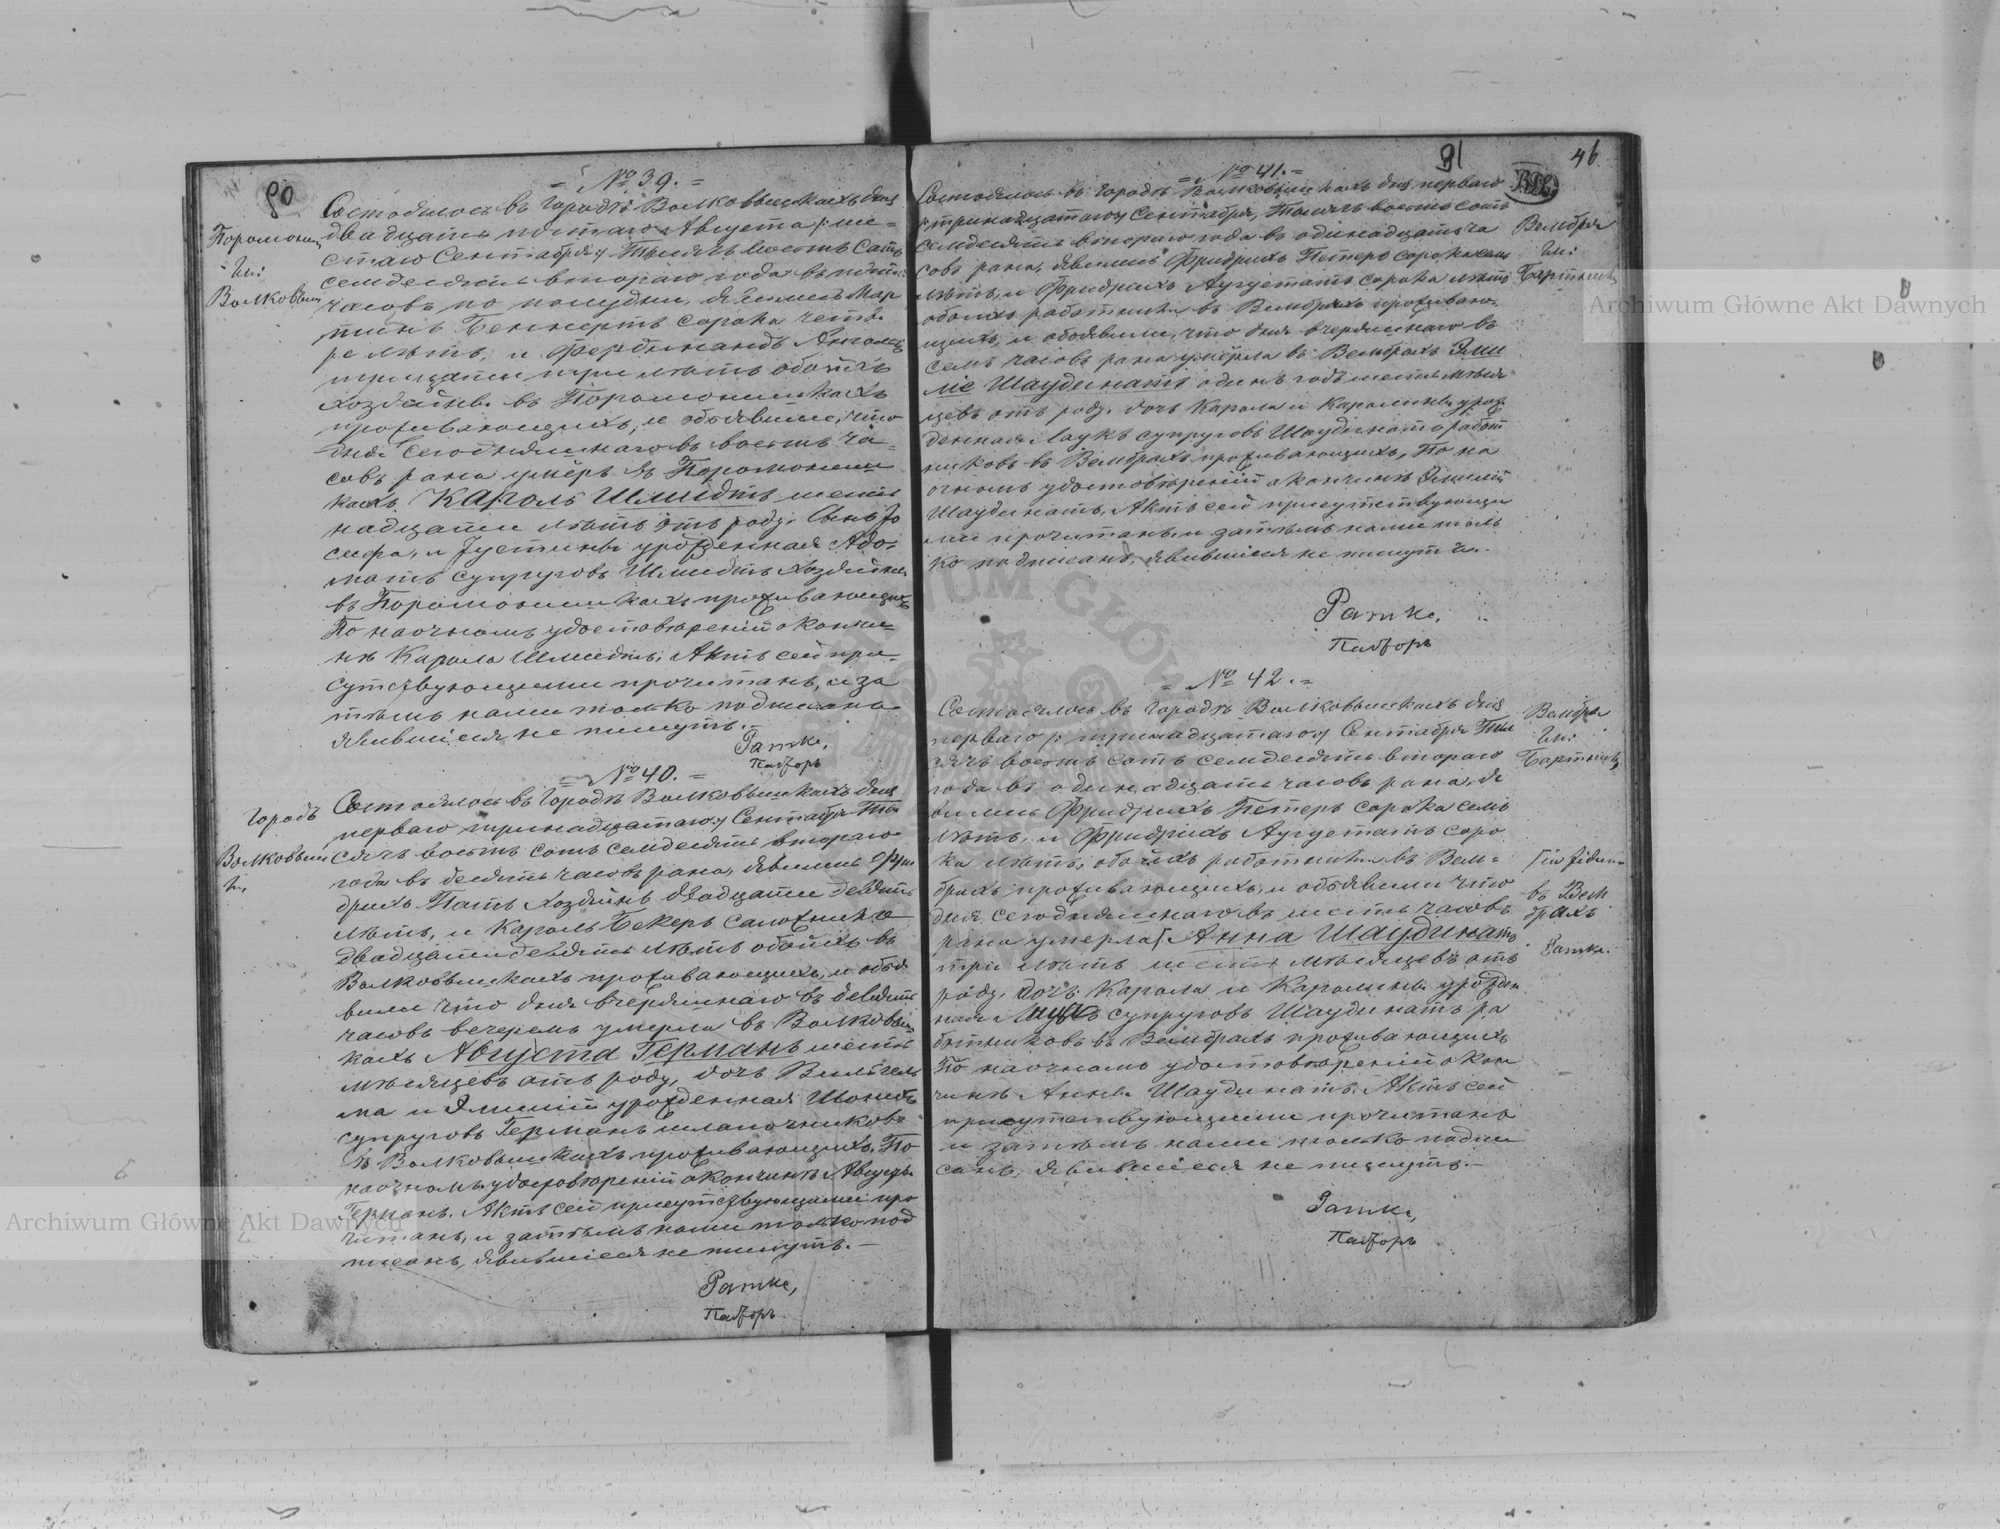 90
= № 39. =
Поромониш
ки:
Волковыш
Состоялось въ городѣ Волковышкахъ дня
двадцать пятаго Августа /: ше=
стаго Сентября:/ Тысяча восемь сотъ
семдесятъ втораго года въ пять
часовъ по полудни, явились Мар
тинъ Беннертъ сорока четы
ре лѣтъ, и Фердинандъ
тридцати три лѣтъ обоихъ
хозяины въ Поромонишкахъ
проживающихъ, и объявили, что
дня сегодняшняго въ восемь ча=
совъ рана умёръ въ Поромониш
кахъ Кароль Шмидтъ шест
надцати лѣтъ отъ роду. Сынъ Iо
сефа, и Iустины урожденная Адо=
матъ супруговъ Шмидтъ хозяины
въ Поромонишкахъ проживающихъ
По наочномъ удостовѣреніи о кончи=
нѣ Кароля Шмидтъ, Актъ сей при=
сутствующими прочитанъ, и за
тѣмъ нами только подписанъ
явившіеся не пишутъ.—
Ратке,
Пасторъ
= № 40. =
городъ
Волковыш
ки,
Состоялось въ городѣ Волковышкахъ дня
перваго тринадцатаго:/ Сентября Ты
сяча восемь сотъ семдесятъ втораго
года въ десять часовъ рана, явились Фри
дрихъ Патъ хозяинъ двадцати девять
лѣтъ, и Кароль Бекеръ сапожникъ
двадцати девять лѣтъ обоихъ въ
Волковышкахъ проживающихъ, и объя
вили что дня вчерашняго въ девять
часовъ вечеромъ умерла въ Волковыш
кахъ Августа Германъ шесть
мѣсяцевъ отъ роду, дочь Вильгель
ма и Эмиліи урожденная Шонъ
супруговъ Германъ шлапочниковъ
въ Волковышкахъ проживающихъ, По
наочномъ удостовѣреніи о кончинѣ Августы
Германъ. Актъ сей присутствующими про
читанъ, и затѣмъ нами только под
писанъ, явившіеся не пишутъ.—
Ратке,
Пасторъ
91
46
= № 41. =
Вембря
ки:
Бартники
Состоялось въ городѣ Волковышкахъ дня перваго
/: тринадцатаго:/ Сентября, Тысяча восемь сотъ
семдесятъ втораго года въ одинадцать ча
совъ рана, явились Фридрихъ Петеръ сорока семь
лѣтъ, и Фридрихъ Аугустатъ сорока лѣтъ
обоихъ работники въ Вембряхъ прожива=
ющихъ, и объявили, что дня вчерашняго въ
семь часовъ рана умёрла въ Вембрахъ Эми
лie Шаудинатъ одинъ годъ шесть мѣся
цевъ отъ роду. дочь Кароля и Каролины урож
денная Лаукъ супруговъ Шаудинатъ работ
никовъ въ Вембрахъ проживающихъ, По на
очномъ удостовѣреніи о кончинѣ Эмиліи
Шаудинатъ, Актъ сей присутствующи
ми прочитанъ и затѣмъ нами толь
ко подписанъ, явившіеся не пишутъ.—
Ратке,
Пасторъ
= № 42. =
Вембря
ки:
Бартники
Состоялось въ городѣ Волковышкахъ дня
перваго /: тринадцатаго:/ Сентября Ты
сяча восемь сотъ семдесятъ втораго
года въ одинадцать часовъ рана, я
вились Фридрихъ Петеръ сорока семь
лѣтъ, и Фридрихъ Аугустатъ соро
ка лѣтъ, обоихъ работники въ Вем=
брахъ проживающихъ, и объявили что
дня сегодняшняго въ шесть часовъ
рана умерла/ Анна Шаудинатъ
три лѣтъ шесть мѣсяцевъ отъ
роду. дочь Кароля и Каролины урожден
ная Лаукъ супруговъ Шаудинатъ ра
ботниковъ въ Вембрахъ проживающихъ
По наочномъ удостовѣреніи о кон
чинѣ Анны Шаудинатъ. Актъ сей
присутствующими прочитанъ
и затѣмъ нами только подпи
санъ, явившіеся не пишутъ.—
въ Вем
брахъ
Ратке.
Ратке,
Пасторъ
Archiwum Główne Akt Dawnych
Archiwum Główne Akt Dawnych